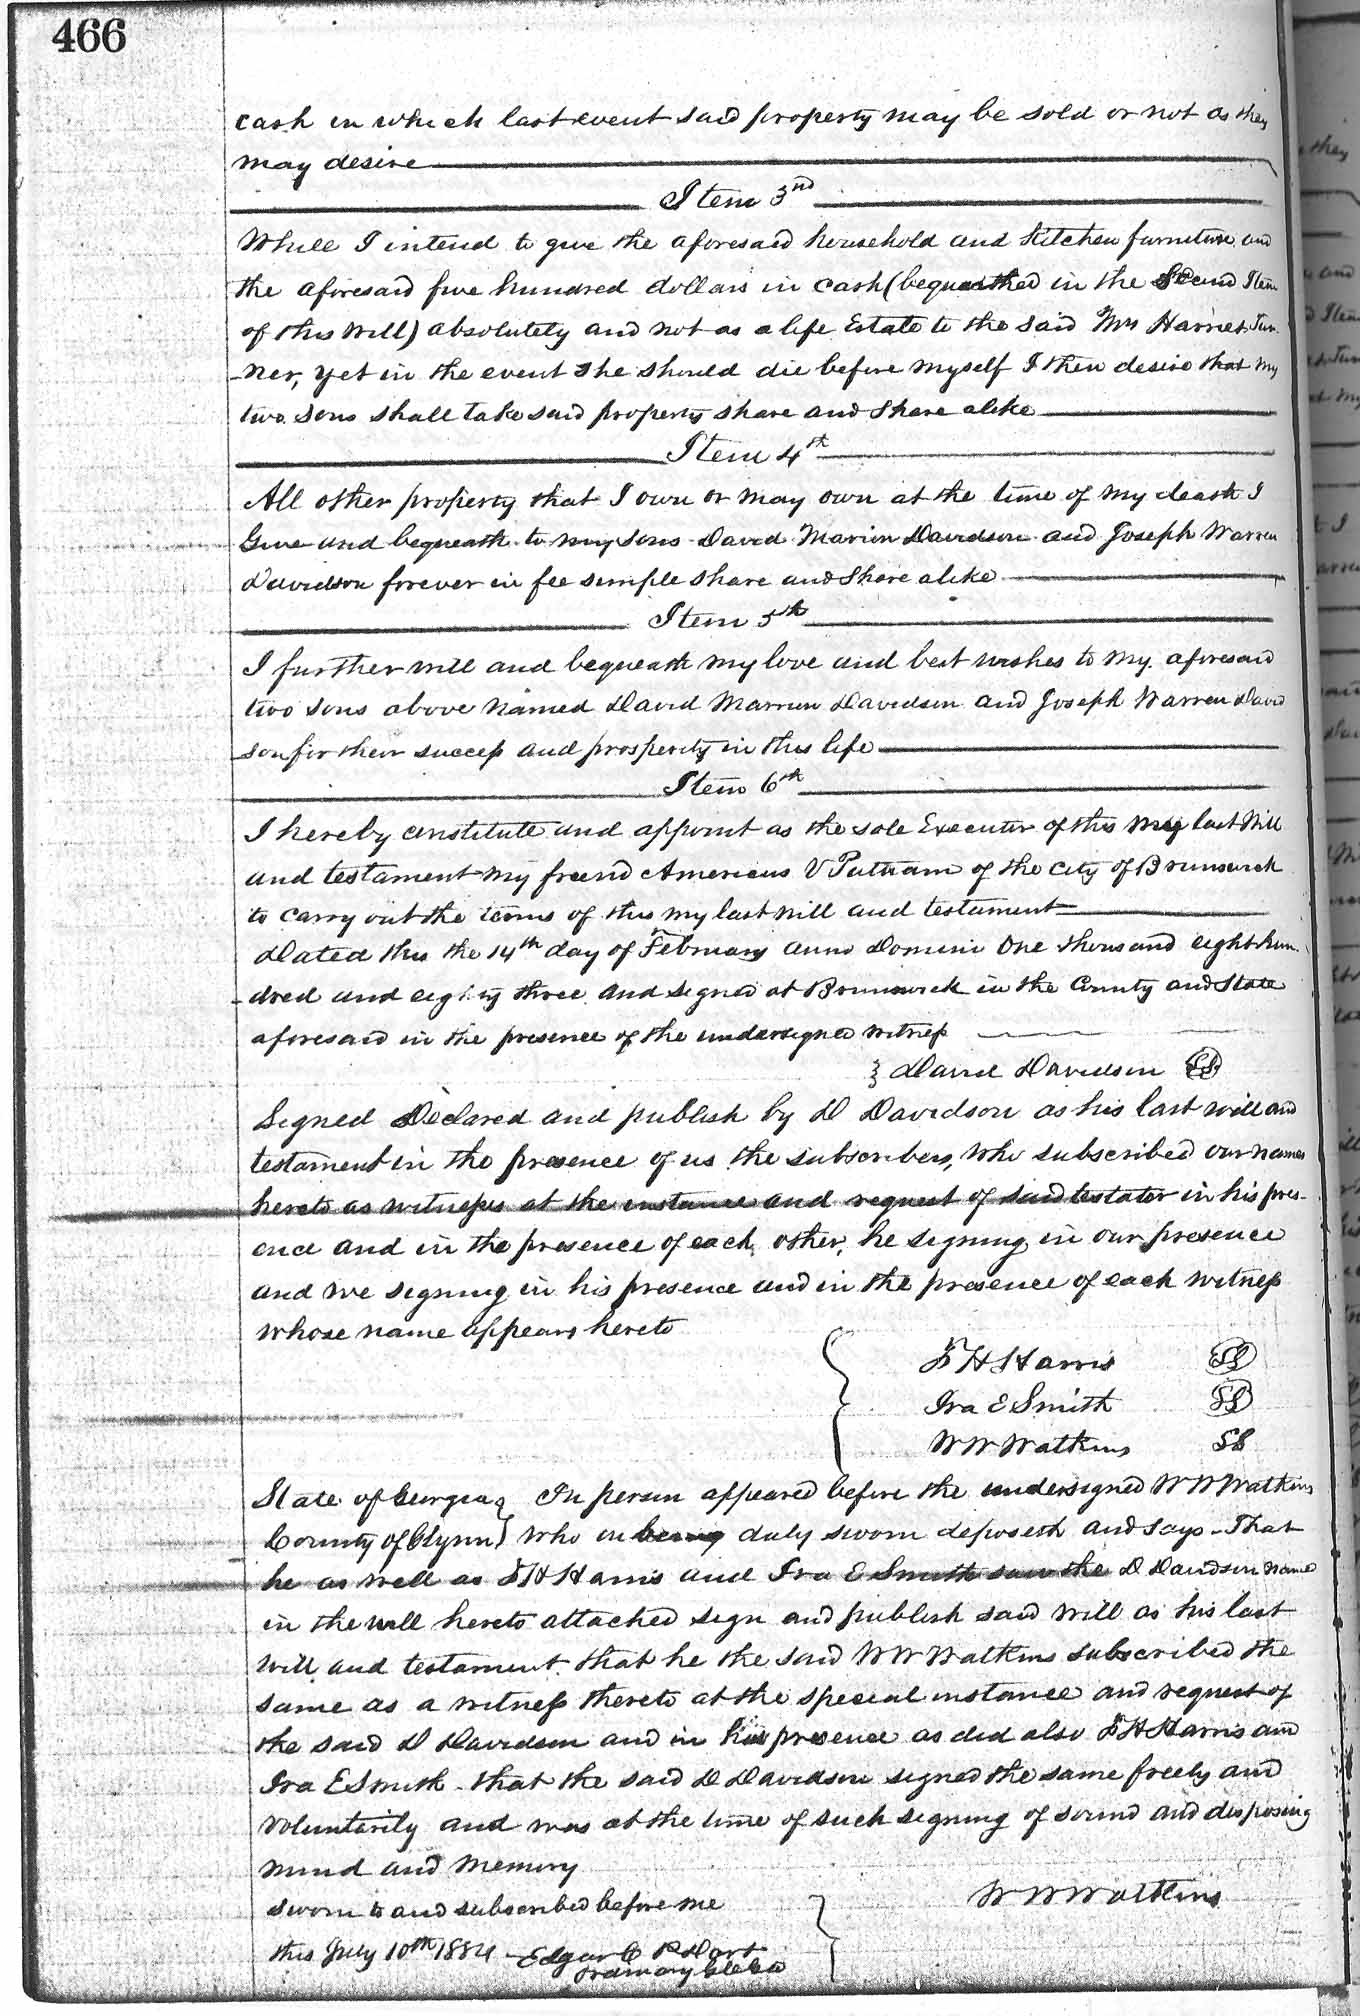 466
cash in which last event said property may be sold or not as they
may desire
Item 3nd
While I intend to give the aforesaid household and Kitchen furniture and
the aforesaid five hundred dollars in cash (bequeathed in the Second Item
of this Will) absolutely and not as a life Estate to the said Mrs Harriet Tur-
-ner, yet in the event she should die before myself I then desire that my
two sons shall take said property share and share alike
Item 4th
All other property that I own or may own at the time of my death I
Give and bequeath to my sons David Marion Davidson and Joseph Warren
Davidson forever in fee simple share and share alike
Item 5th
I further will and bequeath my love and best wishes to my aforesaid
two sons above named David Marrion Davidson and Joseph Warren David
son for their success and prosperity in this life
Item 6th
I hereby constitute and appoint as the sole Executor of this my last Will
and testament my friend Americus V Putnam of the City of Brunswick
to carry out the terms of this my last will and testament
Dated this the 14th day of February anno Domini One thousand eight hun-
-dred and eighty three and signed at Brunswick in the County and State
aforesaid in the presence of the undersigned witness
David Davidson LS
Signed Declared and publish by D Davidson as his last will and
testament in the presence of us the subscribers, who subscribed our names
hereto as witnesses at the instance and request of said testator in his pres-
ence and in the presence of each other, he signing in our presence
and we signing in his presence and in the presence of each witness
whose name appears hereto
F H Harris LS
Ira E Smith LS
W W Watkins LS
State of Georgia } In person appeared before the undersigned W W Watkins
County of Glynn } who in being duly sworn deposeth and says - That
he as well as F H Harris and Ira E Smith saw the D Davidson named
in the will hereto attached sign and publish said will as his last
will and testament. that he the said W W Watkins subscribed the
same as a witness thereto at the special instance and request of
the said D Davidson and in his presence as did also F H Harris and
Ira E Smith - that the said D Davidson signed the same freely and
voluntarily and was at the time of such signing of sound and disposing
mind and memory
Sworn to and subscribed before me
W W Watkins
this July 10th 1884 Edgar C P Dart
Ordinary G C Ga